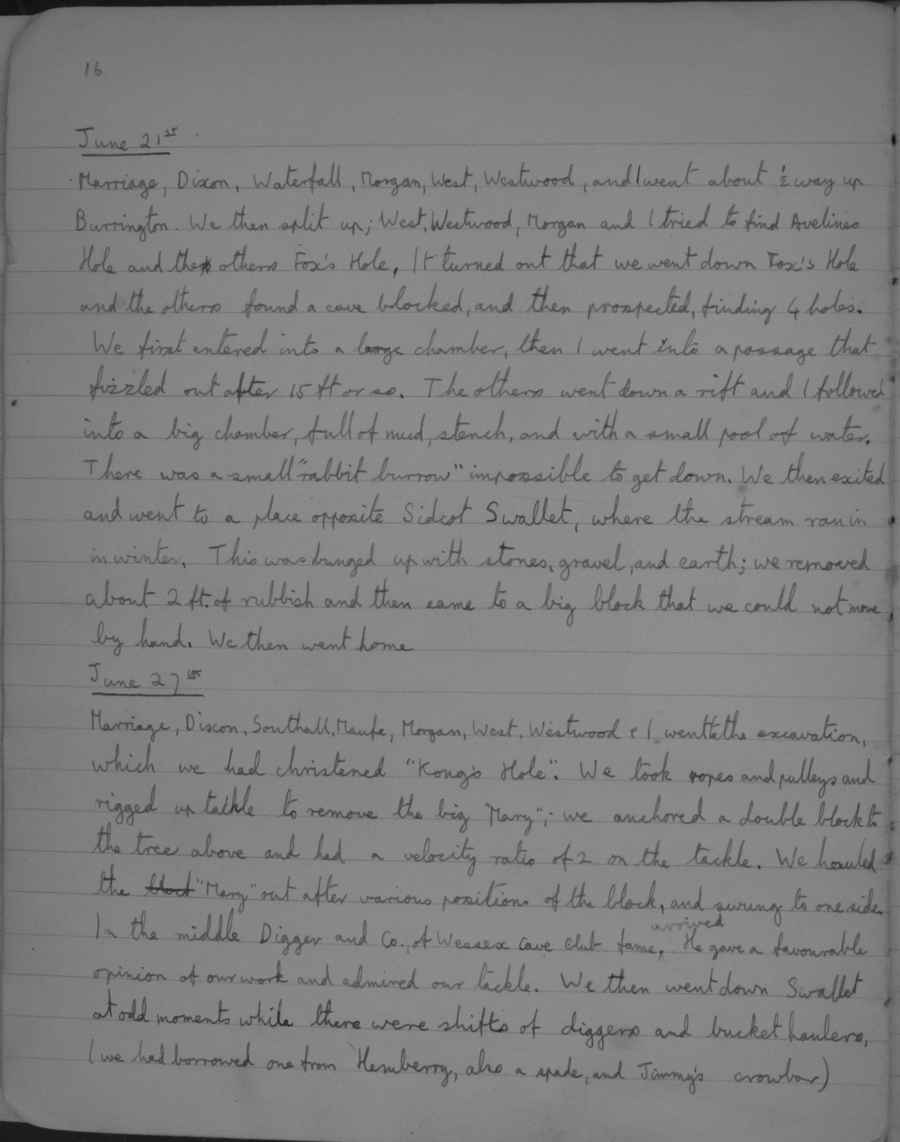 16
June 21st
Marriage, Dixon, Waterfall, Morgan, West, Westwood, and I went about ½ way up
Burrington. We then split up; West, Westwood, Morgan and I tried to find Avelines
Hole and the others Fox's Hole, It turned out that we went down Fox's Hole
and the others found a cave blocked, and then prospected, finding 4 holes.
We first entered into a large chamber, then I went into a passage that
fizzled out after 15 ft or so. The others went down a rift and I followed
into a big chamber, full of mud, stench, and with a small pool of water.
There was a small "rabbit burrow" impossible to get down. We then exited
and went to a place opposite Sidcot Swallet, where the stream ran in
in winter. This was bunged up with stones, gravel, and earth; we removed
about 2 ft. of rubbish and then came to a big block that we could not move,
by hand. We then went home
June 27th
Marriage, Dixon, Southall, Maufe, Morgan, West, Westwood & I went to the excavation,
which we had christened "Kong's Hole". We took ropes and pulleys and
rigged up tackle to remove the big "Mary"; we anchored a double block to
the tree above and had a velocity ratio of 2 on the tackle. We hauled
the block "Mary" out after various positions of the block, and swung to one side.
In the middle Digger and Co., of Wessex Cave Club fame, arrived He gave a favourable
opinion of our work and admired our tackle. We then went down Swallet
at odd moments while there were shifts of diggers and bucket haulers,
(we had borrowed one from Hemberry, also a spade, and Jimmy's crowbar)